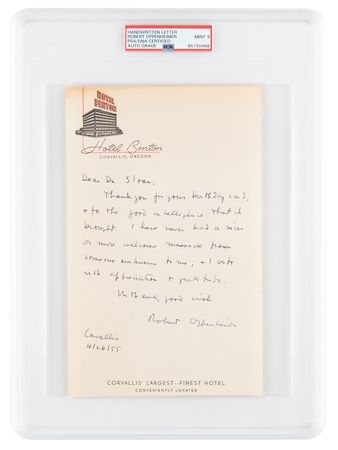 HANDWRITTEN LETTER
ROBERT OPPENHEIMER
PSA/DNA CERTIFIED
AUTO GRADE
PSA
MINT 9
85150468
HOTEL
BENTON
Hotel Benton
CORVALLIS, OREGON
Dear Dr Sloan,
Thank you for your birthday card,
& for the good intelligence that it
brought. I have never had a nicer
or more welcome message from
someone unknown to me; & I write
with appreciation & gratitude.
With every good wish
Robert Oppenheimer
Corvallis
4/26/55
CORVALLIS' LARGEST–FINEST HOTEL
CONVENIENTLY LOCATED